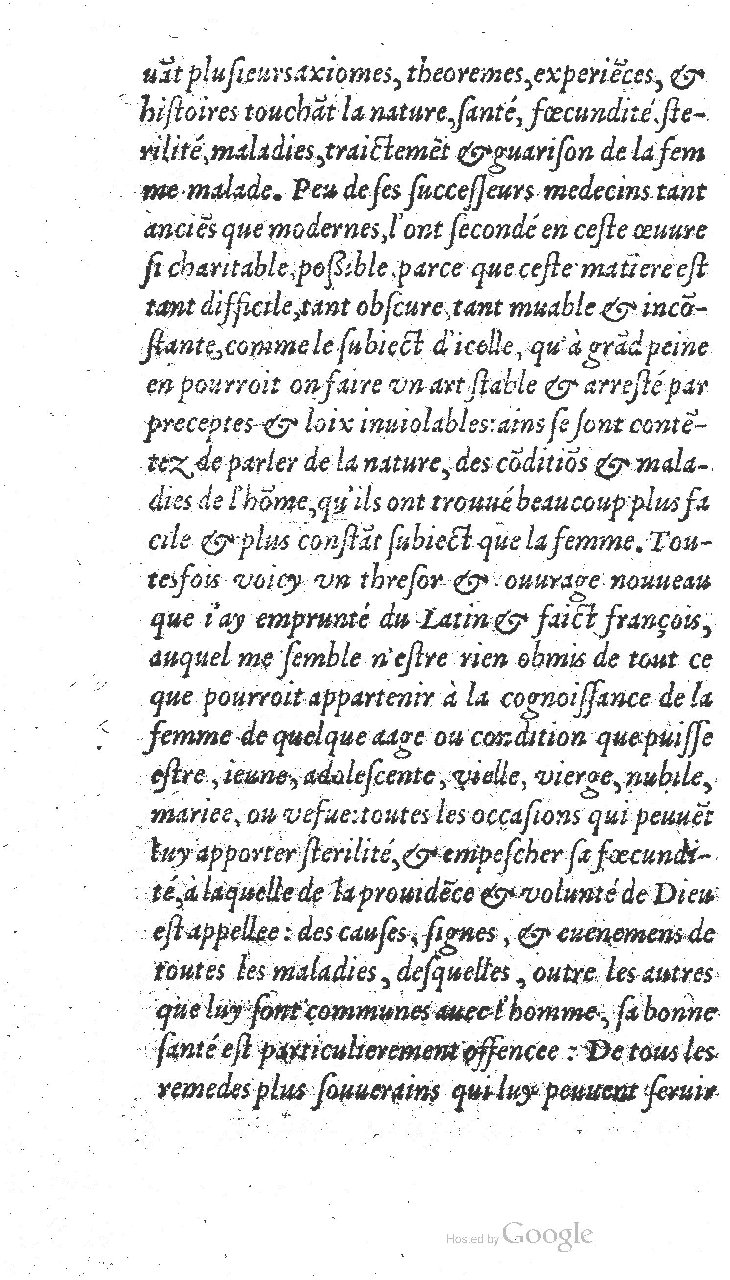 uãt plusieurs axiomes, theoremes, experiẽces, &
histoires touchãt la nature, santé, fœcundité, ste-
rilité, maladies, traictemẽt & guarison de la fem
me malade. Peu de ses successeurs medecins tant
anciẽs que modernes, l'ont secondé en ceste œuure
si charitable, possible, parce que ceste matiere est
tant difficile, tant obscure, tant muable & incõ-
stante, comme le subiect d'icelle, qu'à grãd peine
en pourroit on faire vn art stable & arresté par
preceptes & loix inuiolables: ains se sont contẽ-
tez de parler de la nature, des cõditiõs & mala-
dies de l'hõme, qu'ils ont trouué beaucoup plus fa
cile & plus constãt subiect que la femme. Tou-
tesfois voicy vn thresor & ouurage nouueau
que i'ay emprunté du Latin & faict françois,
auquel me semble n'estre rien obmis de tout ce
que pourroit appartenir à la cognoissance de la
femme de quelque aage ou condition que puisse
estre, ieune, adolescente, vielle, vierge, nubile,
mariee, ou vefue: toutes les occasions qui peuuẽt
luy apporter sterilité, & empescher sa fœcundi-
té, à laquelle de la prouidẽce & volunté de Dieu
est appellee: des causes, signes, & euenemens de
toutes les maladies, desquelles, outre les autres
que luy sont communes auec l'homme, sa bonne
santé est particulierement offencee: De tous les
remedes plus souuerains qui luy peuuent seruir
Hosted by Google